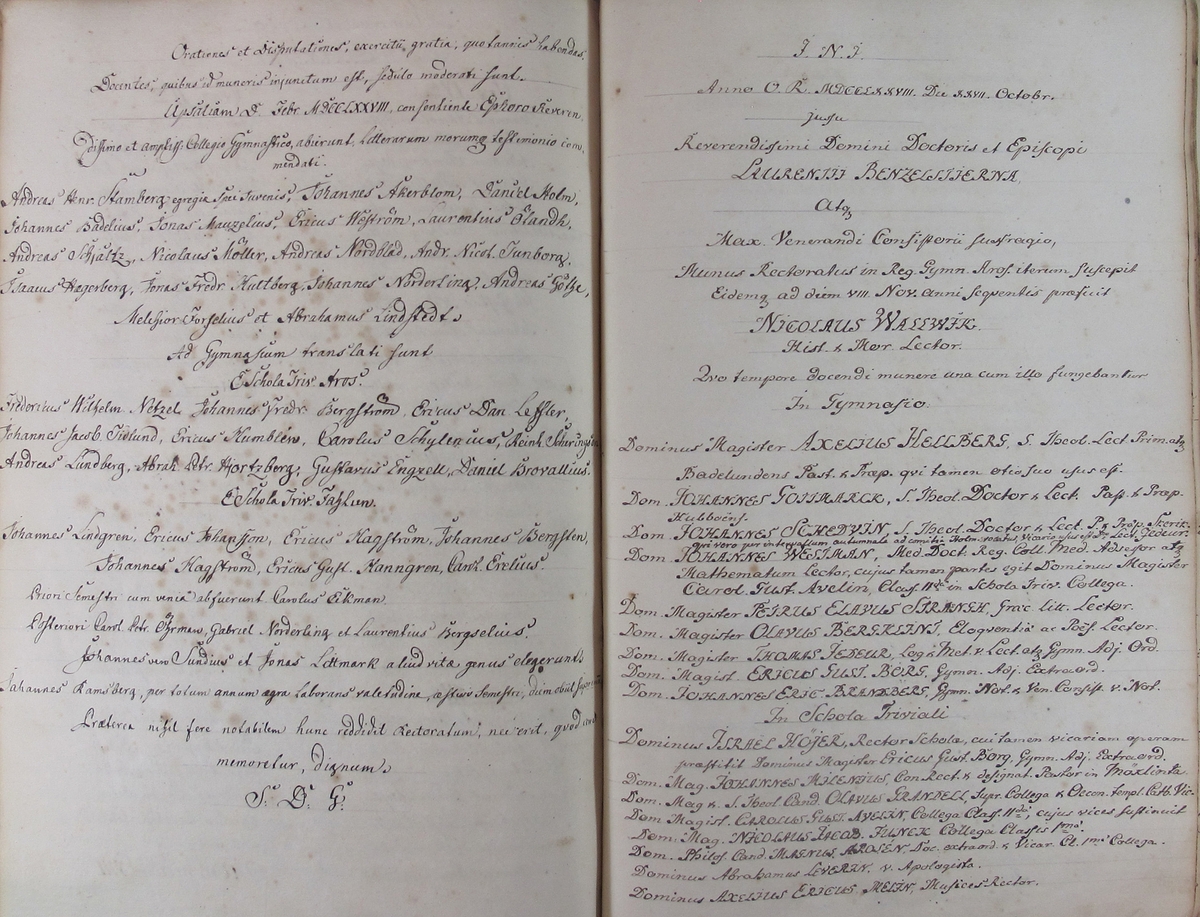 Orationes et Disputationes, exercitii gratia, quotannis habendas,
Docentes, quibus id muneris injunctum est, sedulo moderati sunt.
Upsaliam D. Febr. MDCCLXXVIII, consentiente Ephoro Reveren-
dissimo et Ampliss. Collegio Gymnastico, abierunt, Litterarum morumq testimonio com-
mendati.
Andreas Henr. Stamberg egregia spei Iuvenis, Johannes Åkerblom, Daniel Holm,
Johannes Badelius, Jonas Mauzelius, Ericus Weström, Laurentius Ölandh,
Andreas Schjaltz, Nicolaus Möller, Andreas Nordblad, Andr. Nicol. Tunborg,
Isaacus Hagerberg, Jonas Fredr. Hultberg, Johannes Norderling, Andreas Götze,
Melchior Forselius et Abrahamus Lindstedt.
Ad Gymnasium translati sunt
E Schola Triv. Aros.
Fredericus Wilhelm Netzel, Johannes Fredr. Bergström, Ericus Dan. Leffler,
Johannes Jacob Tidlund, Ericus Humblew, Carolus Schylenius, Reinh.
Andreas Lundberg, Abrah. Petr. Hortzberg, Gustavus Engzell, Daniel Brovallius.
E Schola Triv. Fahlun.
Johannes Lindgren, Ericus Johansson, Ericus Hagström, Johannes Bergsten,
Johannes Hagström, Ericus Gust. Ranngren, Carol. Erelius.
Priori Semestri cum venia abfuerunt Carolus Ekman
Posteriori Carol. Petr. Öhrman, Gabriel Norderling et Laurentius Bergselius.
Johannes vero Sundius et Jonas Littmark aliud vitæ genus elegerunt.
Johannes Ramsberg, per totum annum ægra laborans valetudine, æstivo Semestri, diem obiit
Præterea nihil fere notabilem hunc reddidit Rectoratum, nec erit, quod
memoretur, dignum.
S. D. G.
I. N. I.
Anno O. R. MDCCLXXVIII. Die XXVII. Octobr.
jussu
Reverendissimi Domini Doctoris et Episcopi
LAURENTII BENZELSTJERNA,
Atq
Max. Venerandi Consistorii suffragio,
Munus Rectoratus in Reg. Gymn. Aros. iterum suscepit
Eidemq ad diem VIII. Nov. anni seqventis præfuit
NICOLAUS WALLWIK.
Hist. & Mor. Lector.
Qvo tempore docendi munere una cum illo fungebantur
In Gymnasio.
Dominus Magister AXELIUS HELLBERG, S. Theol. Lect. Prim. atq
Badelundens. Past. & Præp. qvi tamen otio suo usus est.
Dom. JOHANNES GOSTMARCK, S. Theol. Doctor & Lect. Past. & Præp.
Hubboens.
Dom. JOHANNES SCHEDVIN, S. Theol. Doctor & Lect. P. & Præp. Skerik.
qvi vero per intervallum autumnale ad comitia Holm. vocatus, Vicario usus est Dn. Lect. Fedeur.
Dom. JOHANNES WESTMAN, Med. Doct. Reg. Coll. Med. Adsessor atq
Mathematum Lector, cujus tamen partes egit Dominus Magister
Carol. Gust. Avelin, Class. IIdæ in Schola Triv. Collega.
Dom. Magister PETRUS ELAVUS STRANGH, Græc. litt. Lector.
Dom. Magister OLAVUS BERGKLINT, Eloqventiæ ac Poës. Lector.
Dom. Magister THOMAS FEDEUR, Log. & Met. v. Lect. atq Gymn. Adj. Ord.
Dom. Magist. ERICUS GUST. BORG, Gymn. Adj. Extraord.
Dom. JOHANNES ERIC. BRANDBERG, Gymn. Not. & Ven. Consist. v. Not.
In Schola Triviali
Dominus ISRAEL HÖJER, Rector Scholæ, cui tamen vicariam operam
præstitit Dominus Magister Ericus Gust. Borg, Gymn. Adj. Extraord.
Dom. Mag. JOHANNES MILENIUS, Con Rect. & designat. Pastor in Möxlinta
Dom. Mag. & S. Theol. Cand. OLAVUS GRANDELL, Supr. Collega & Oecon. templ. Cath. Vic.
Dom. Magist. CAROLUS GUST. AVELIN, Collega Class. IIdæ, cujus vices sustinuit
Dom. Mag. NICOLAUS JACOB. FUNCK Collega Classis Imæ.
Dom. Philos. Cand. MAGNUS AROSEN, Doc. extraord. & Vicar. Cl. Imæ Collega.
Dominus Abrahamus LEVERIN, v. Apologista.
Dominus AXELIUS ERICUS MELIN, Musices Rector.